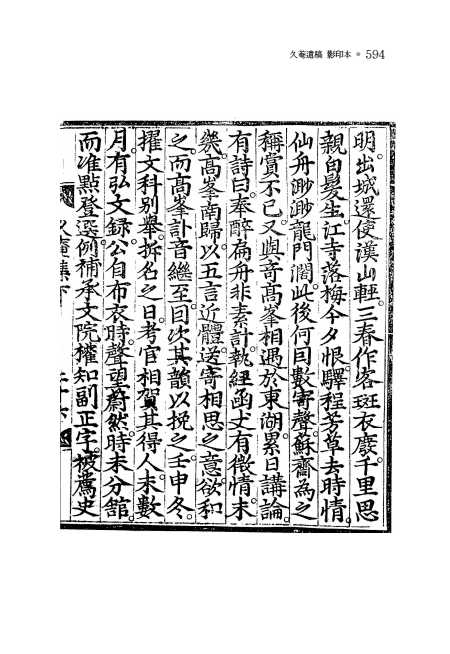 久菴遺稿 影印本 ● 594
明出城還使漢山輕三春作客斑衣廢千里思
親白髮生江寺落梅今夕恨驛程芳草去時情
仙舟渺渺龍門濶此後何因數寄聲蘇齋爲之
稱賞不已又與奇高峯相遇於東湖累日講論
有詩曰奉醉扁舟非素計執經函丈有微情未
幾高峯南歸以五言近體送寄相思之意欲和
之而高峯訃音繼至因次其韻以挽之壬申冬
擢文科別擧拆名之日考官相賀其得人未數
月有弘文錄公自布衣時聲望蔚然時未分舘
而准點登選例補承文院權知副正字被薦史